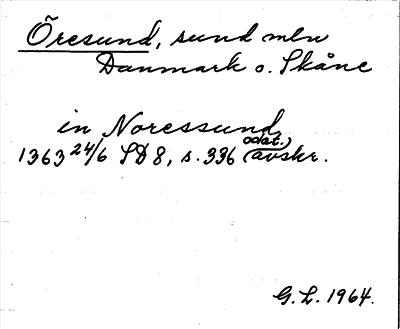 Öresund, sund mln
Danmark o. Skåne
in Noressund
1363 24/6 SD 8, s. 336 (odat.) avskr.
G. L. 1964.